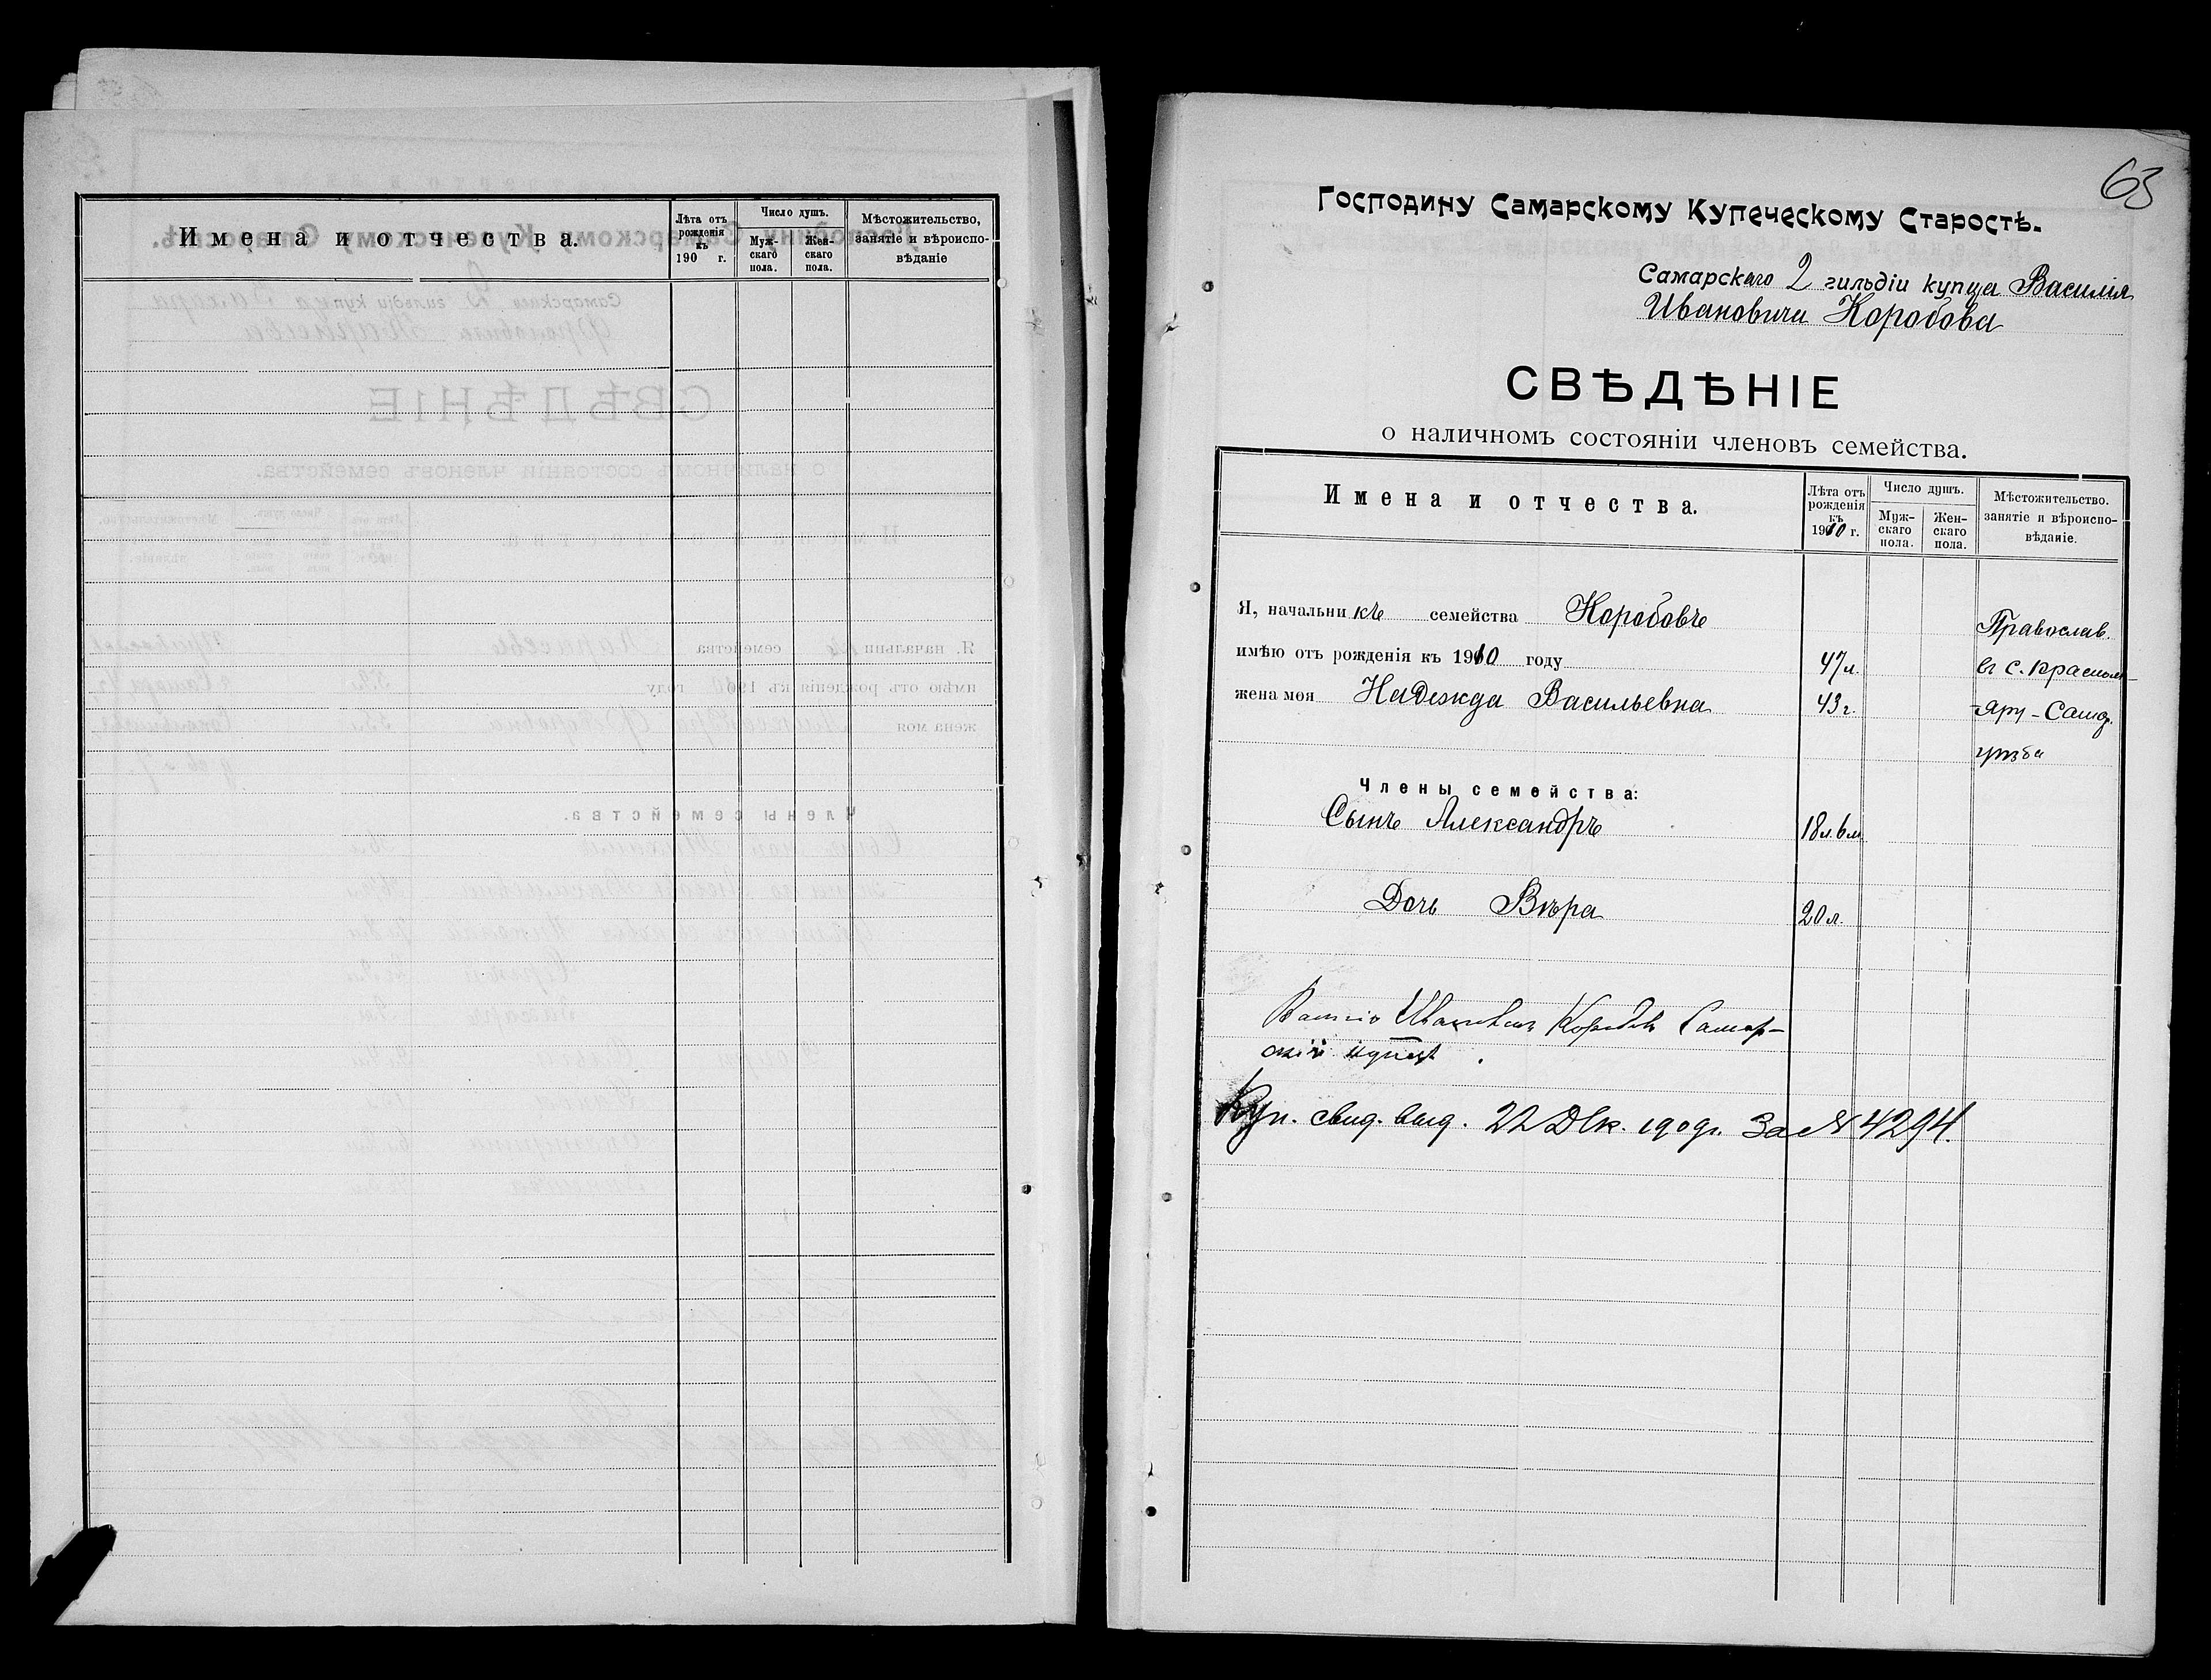 Имена и отчества.
Лѣта отъ рожденія къ 190 г.
Число душъ.
Муж-скаго пола.
Жен-скаго пола.
Мѣстожительство, занятіе и вѣроиспо-вѣданіе
63
Господину Самарскому Купеческому Старостѣ.
Самарскаго 2 гильдіи купца Василія
Ивановича Коробова
СВѢДѢНІЕ
о наличномъ состояніи членовъ семейства.
Имена и отчества.
Лѣта отъ рожденія къ 1910 г.
Число душъ.
Муж-скаго пола.
Жен-скаго пола.
Мѣстожительство. занятіе и вѣроиспо-вѣданіе.
Я, начальникъ семейства Коробовъ Православ.
имѣю отъ рожденія къ 1910 году 47 л. въ с. Красном-
жена моя Надежда Васильевна 43 г. Яру - Самар.
уѣзда
Члены семейства:
Сынъ Александръ 18 л. 6 м
Дочь Вѣра 20 л.
Ивановичъ Коробовъ Самар-
скій купецъ.
Куп. свид. выд. 22 Дек. 1909 г. За № 4294.